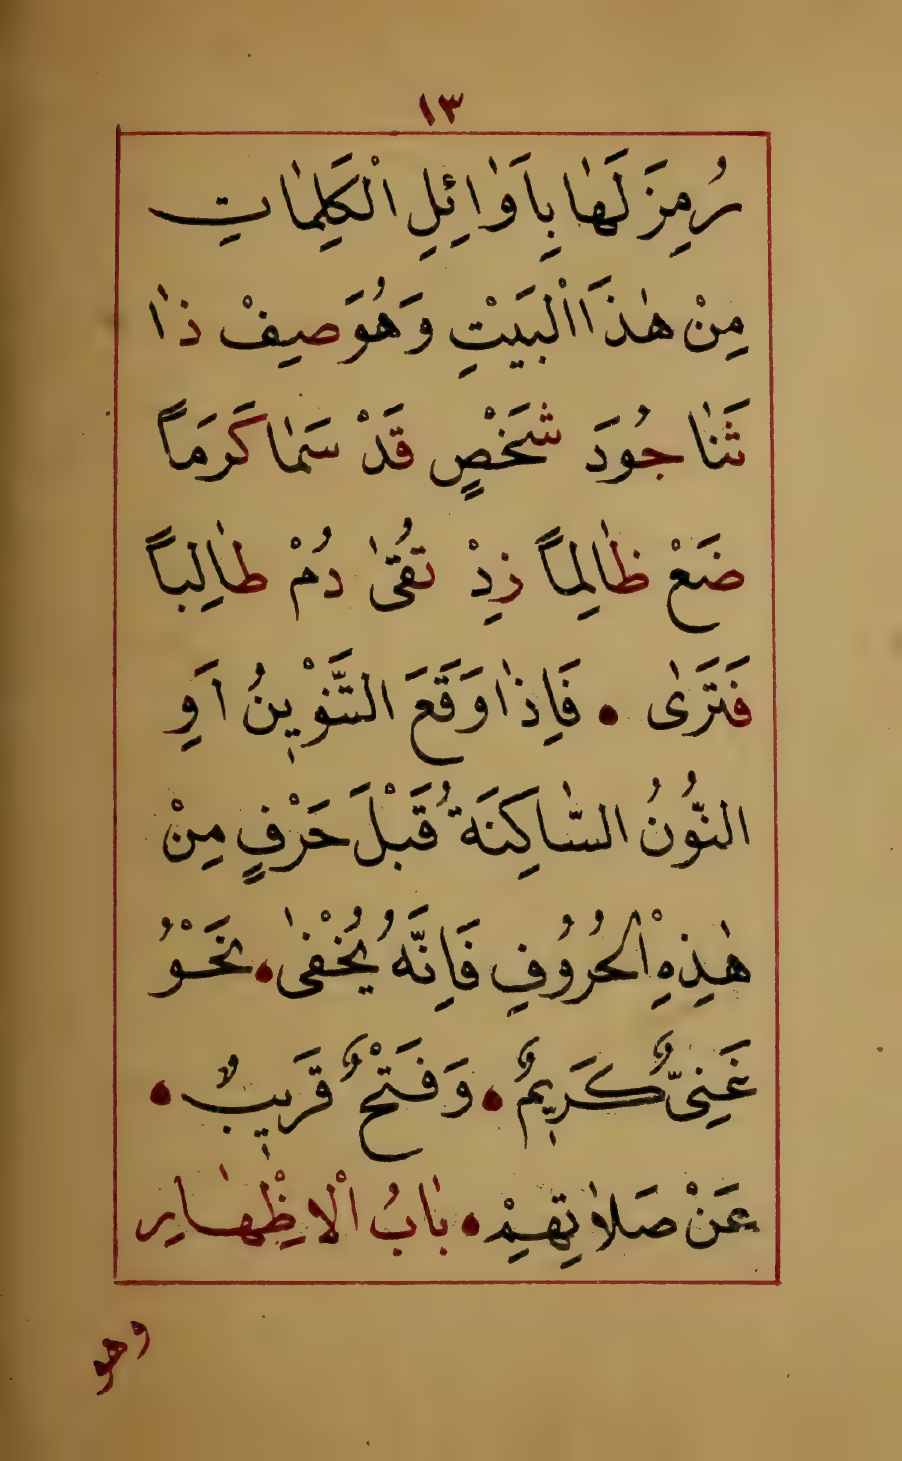 ١٣
رُمِزَ لَهٰا بِاَوٰائِلِ الْكَلِمٰاتِ
مِنْ هٰذَا الْبَيْتِ وَهُوَ صِيفْ ذٰا
ثَنٰا جُودَ شَخْصٍ قَدْ سَمٰا كَرَماً
ضَعْ ظٰالِماً زِدْ تُقىٰ دُمْ طٰالِباً
فَتَرٰى • فَاِذٰا وَقَعَ التَّنْوِينُ اَوِ
النُّونُ السّٰاكِنَةُ قَبْلَ حَرْفٍ مِنْ
هٰذِهِ الْحُرُوفِ فَاِنَّهُ يُخْفىٰ • نَحْوُ
غَنِىٌّ كَرِيمٌ • وَفَتْحٌ قَرِيبٌ •
عَنْ صَلاٰتِهِمْ • بٰابُ الْاِظْهٰارِ
وهو